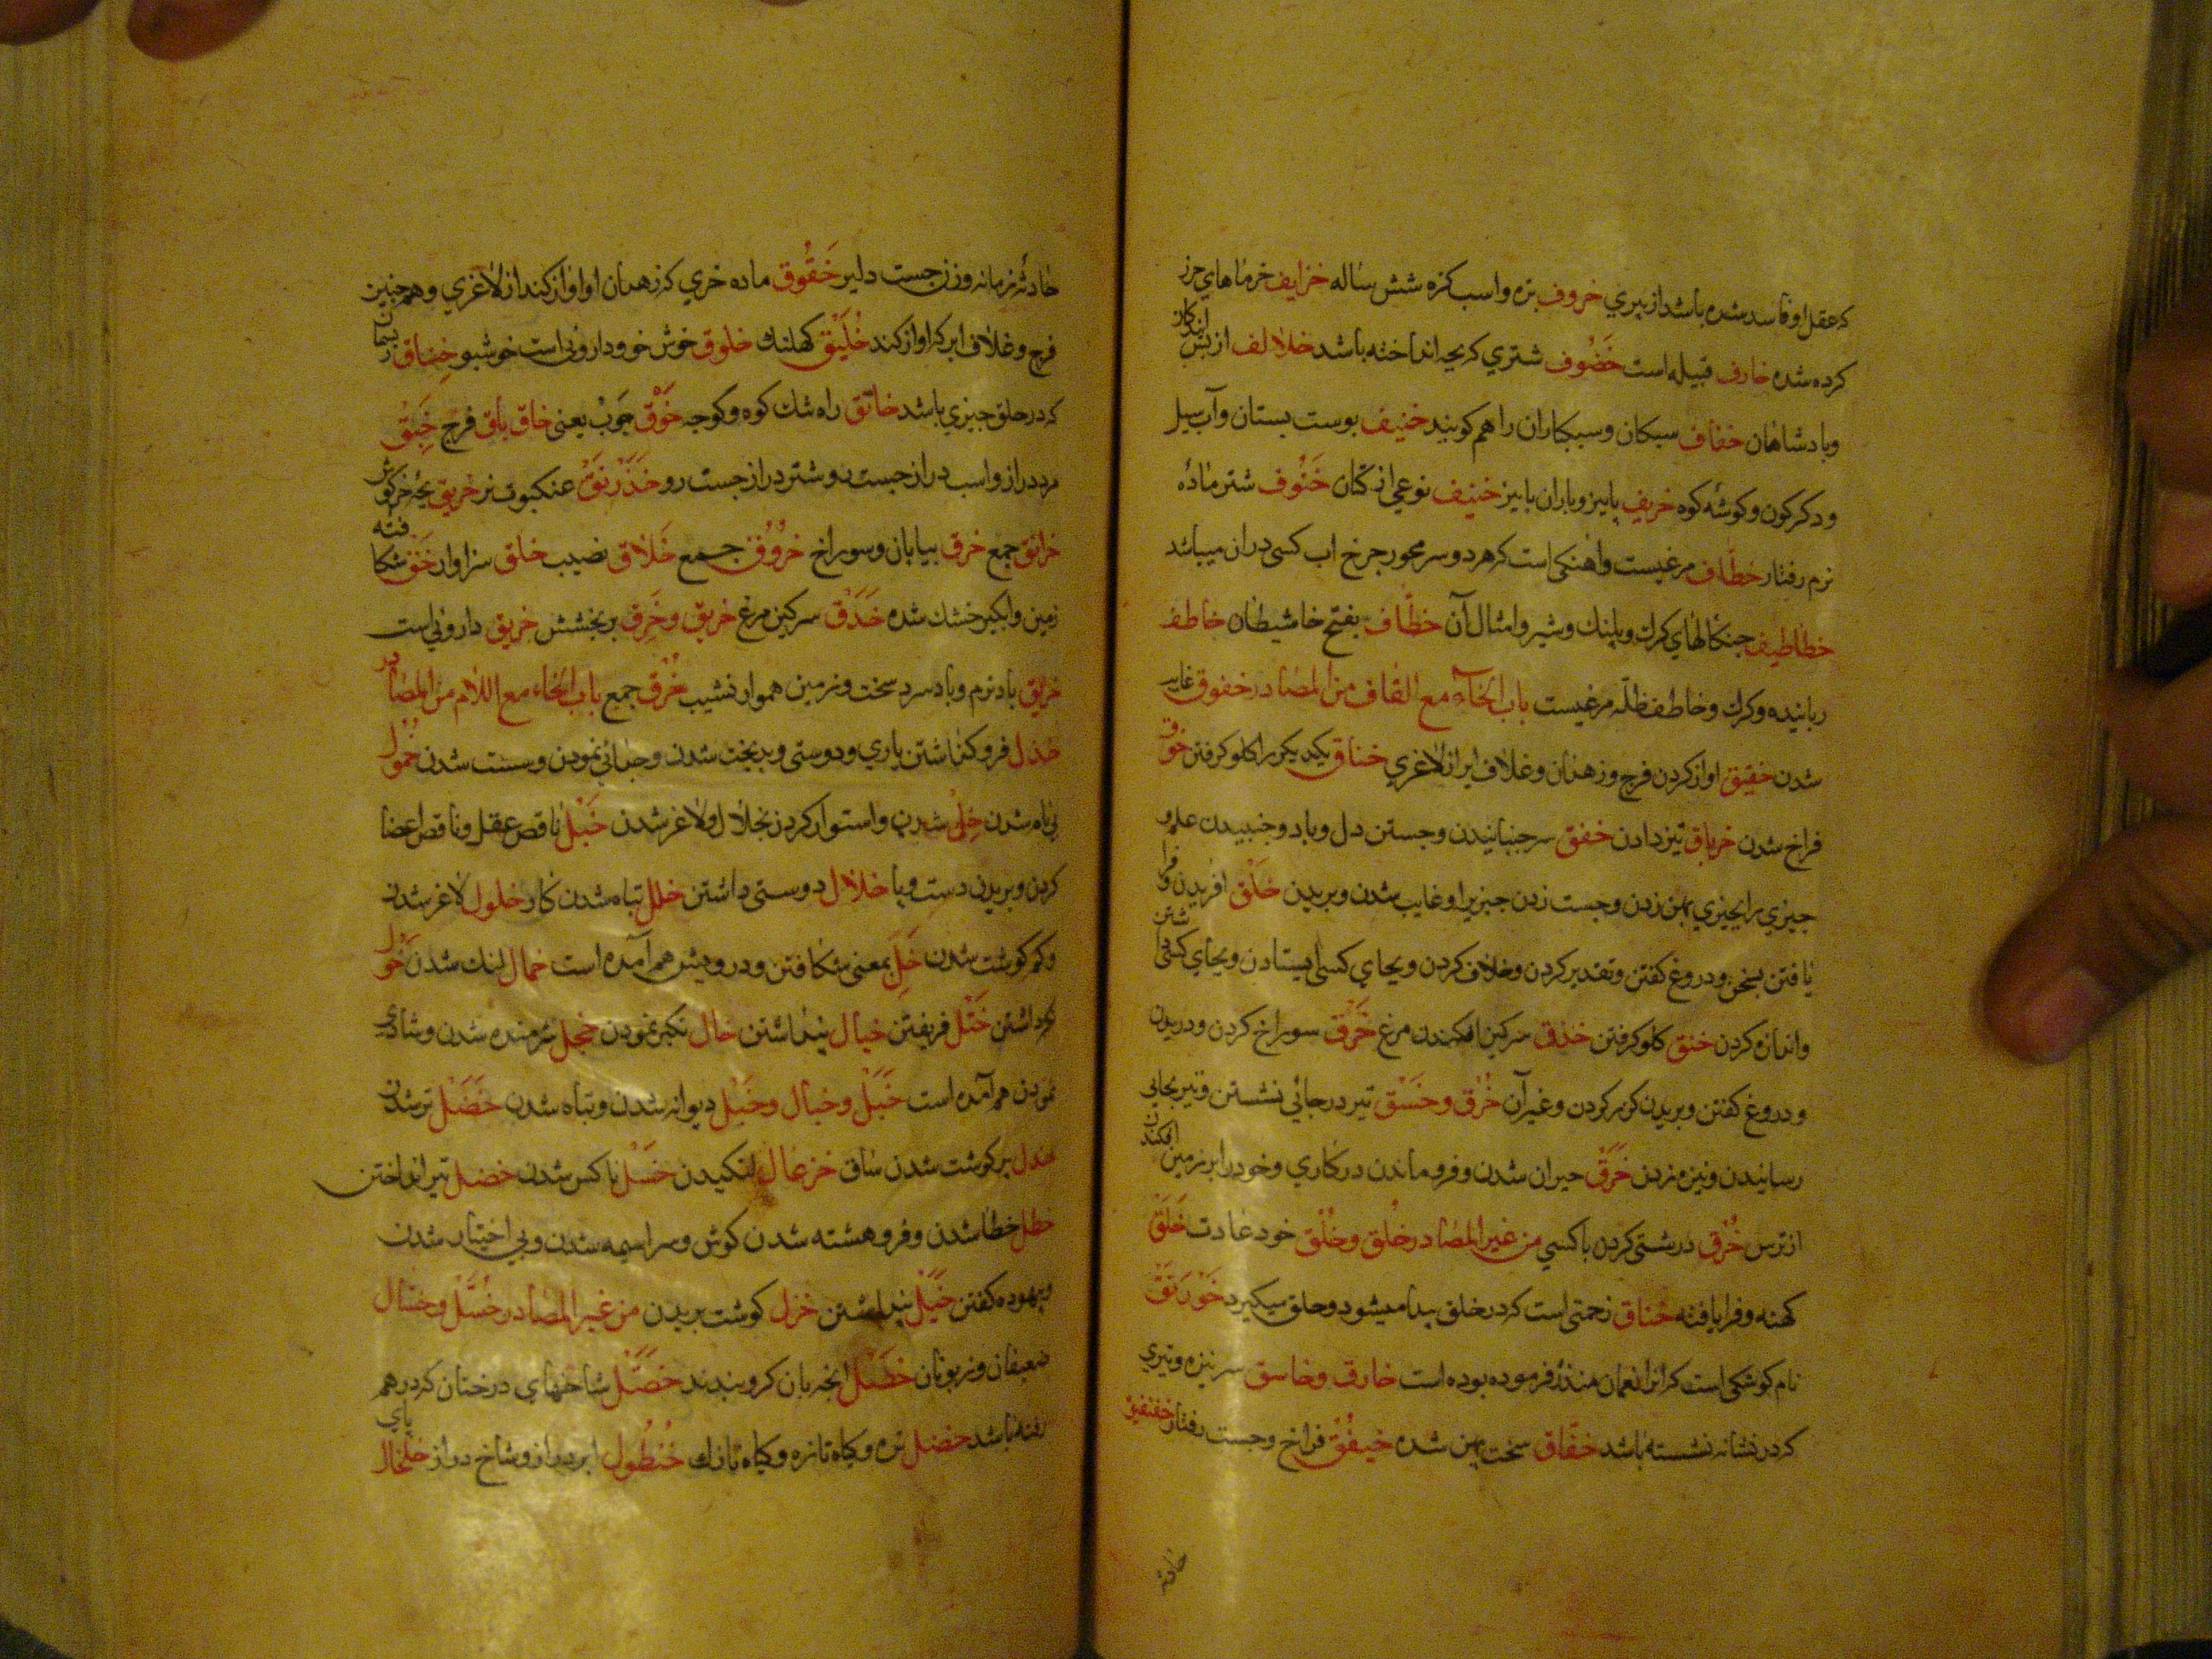 که عقل او فاسد شده باشد از پیری خروف بره و اسب کره شش ساله خزایف خرماهای حرز
کرده شده خارف قبیله است خَضُوف شتری که بچه انداخته باشد خلالف از پس
وبادشاهان خفاف سبکان و سبکباران را هم کویند خنیف بوست بستان و آب سیل
و دکرکون و کوشهٔ کوه خریف پاییز و باران پاییز خنیف نوعی از کتان خَنُوف شتر مادهٔ
نرم رفتار خطّاف مرغیست و اهنکی است که هر دو سر محور جرخ اب کسی دران میباشد
خطاطیف جنکالهای کرک و پلنک و شیر و امثال آن خطّاف بفتح خا شیطان خاطف
رباینده و کرک و خاطف ظلّه مرغیست باب الخآء مع القاف من المصادر خفوق غایب
شدن خقیق اواز کردن فرج و زهدان و غلاف ایر از لاغری خناق یکدیکر را کلو کرفتن خَوَق
فراخ شدن خرباق تیز دادن خفق سر جنبانیدن و جستن دل و باد و جنبیدن علم و
جیزی را بجیزی پهن زدن و جست زدن جیزیرا و غایب شدن و بریدن خَلْق افریدن و فرا
یافتن سخن و دروغ کفتن و تقدیر کردن و خلاف کردن و بجای کسی ایستادن و بجای کسی داشتن
و اندازه کردن خنق کلو کرفتن خذق سرکین افکندن مرغ خَرْق سوراخ کردن و دریدن
و دروغ کفتن و بریدن کزیر کردن و غیر آن خُرْق و خَسْق تیر در جائی نشستن و تیر بجایی
رسانیدن و نیزه زدن خَرَق حیران شدن و فرو ماندن در کاری و خود را بر زمین افکندن
از ترس خُرْق درشتی کردن با کسی من غیر المصادر خُلق و خُلُق خود عادت خَلَق
کهنه و فرا یافته خناق زحمتی است که در خلق پیدا میشود و حلق میکیرد خَوَرْنَق
نام کوشکی است که انرا نعمان منذر فرموده بوده است خارق و خاسق سر نیزه و تیری
که در نشانه نشسته باشد خفّاق سخت پهن شده خیفُق فراخ و جست رفتار خنفقیق
حادثه
حادثهٔ زمانه و زن جست دلیر خَقُوق ماده خری که زهدان او اواز کند از لاغری و همجنین
فرج و غلاف ایر که اواز کند خُلَّیْق کهلنک خلوق خوش خو و داروئی است خوشبو خِناق ریسمان
که در حلق جیزی باشد خانق راه شک کوه و کوجه خَوْق جوب یعنی خاق باق فرج خَبِق
مرد دراز و اسب دراز جست رو و شتر دراز جست رو خَذَرْنَق عنکبوت نر خریق بچهٔ خرکوش
خرانق جمع خرق بیابان و سوراخ خُرُوق جمع خَلاق نصیب خلق سزاوار خَق شکافتهٔ
زمین و ابکیر خشک شده خَذَق سرکین مرغ خریق و خَرِق پر بخشش خریق داروئی است
خریق باد نرم و باد سرد سخت و زمین هموار نشیب خُرُق جمع باب الخاء مع اللام من المصادر
خذل فرو کذاشتن یاری و دوستی و بدبخت شدن و جدائی نمودن و سست شدن خُمُول
بی نام شدن خِلّ شدن و استوار کردن بخلال و لاغر شدن خَبْل ناقص عقل و ناقص اعضا
کردن و بریدن دست و پا خلال دوستی داشتن خلل تباه شدن کار خلول لاغر شدن
و کم کوشت شدن خَلّ بمعنی شکافتن و درویشی هم آمده است خمال لنک شدن خَوَل
نکه داشتن خَتْل فریفتن خیال پنداشتن خال تکبر نمودن خجل شرمنده شدن و شادی
نمودن هم آمده است خَبَل و خبال و خَبْل دیوانه شدن و تباه شدن خَضَل تر شدن
خدل پر کوشت شدن ساق خزعال لنکیدن خسل ناکس شدن خصل تیر انداختن
خطل خطا شدن و فرو هشته شدن کوش و سراسیمه شدن و بی اختیار شدن
و بیهوده کفتن خَیْل پنداشتن خزل کوشت بریدن من غیر المصادر خُسَّل و خسال
ضعیفان و زبونان خَصْل انچه بان کرو بندند خَصَل شاخهای درختان که در هم
رفته باشد خضل تره و کیاه تازه و کیاه نازک خُنْطُول ابر دراز و شاخ دراز خلخال پای